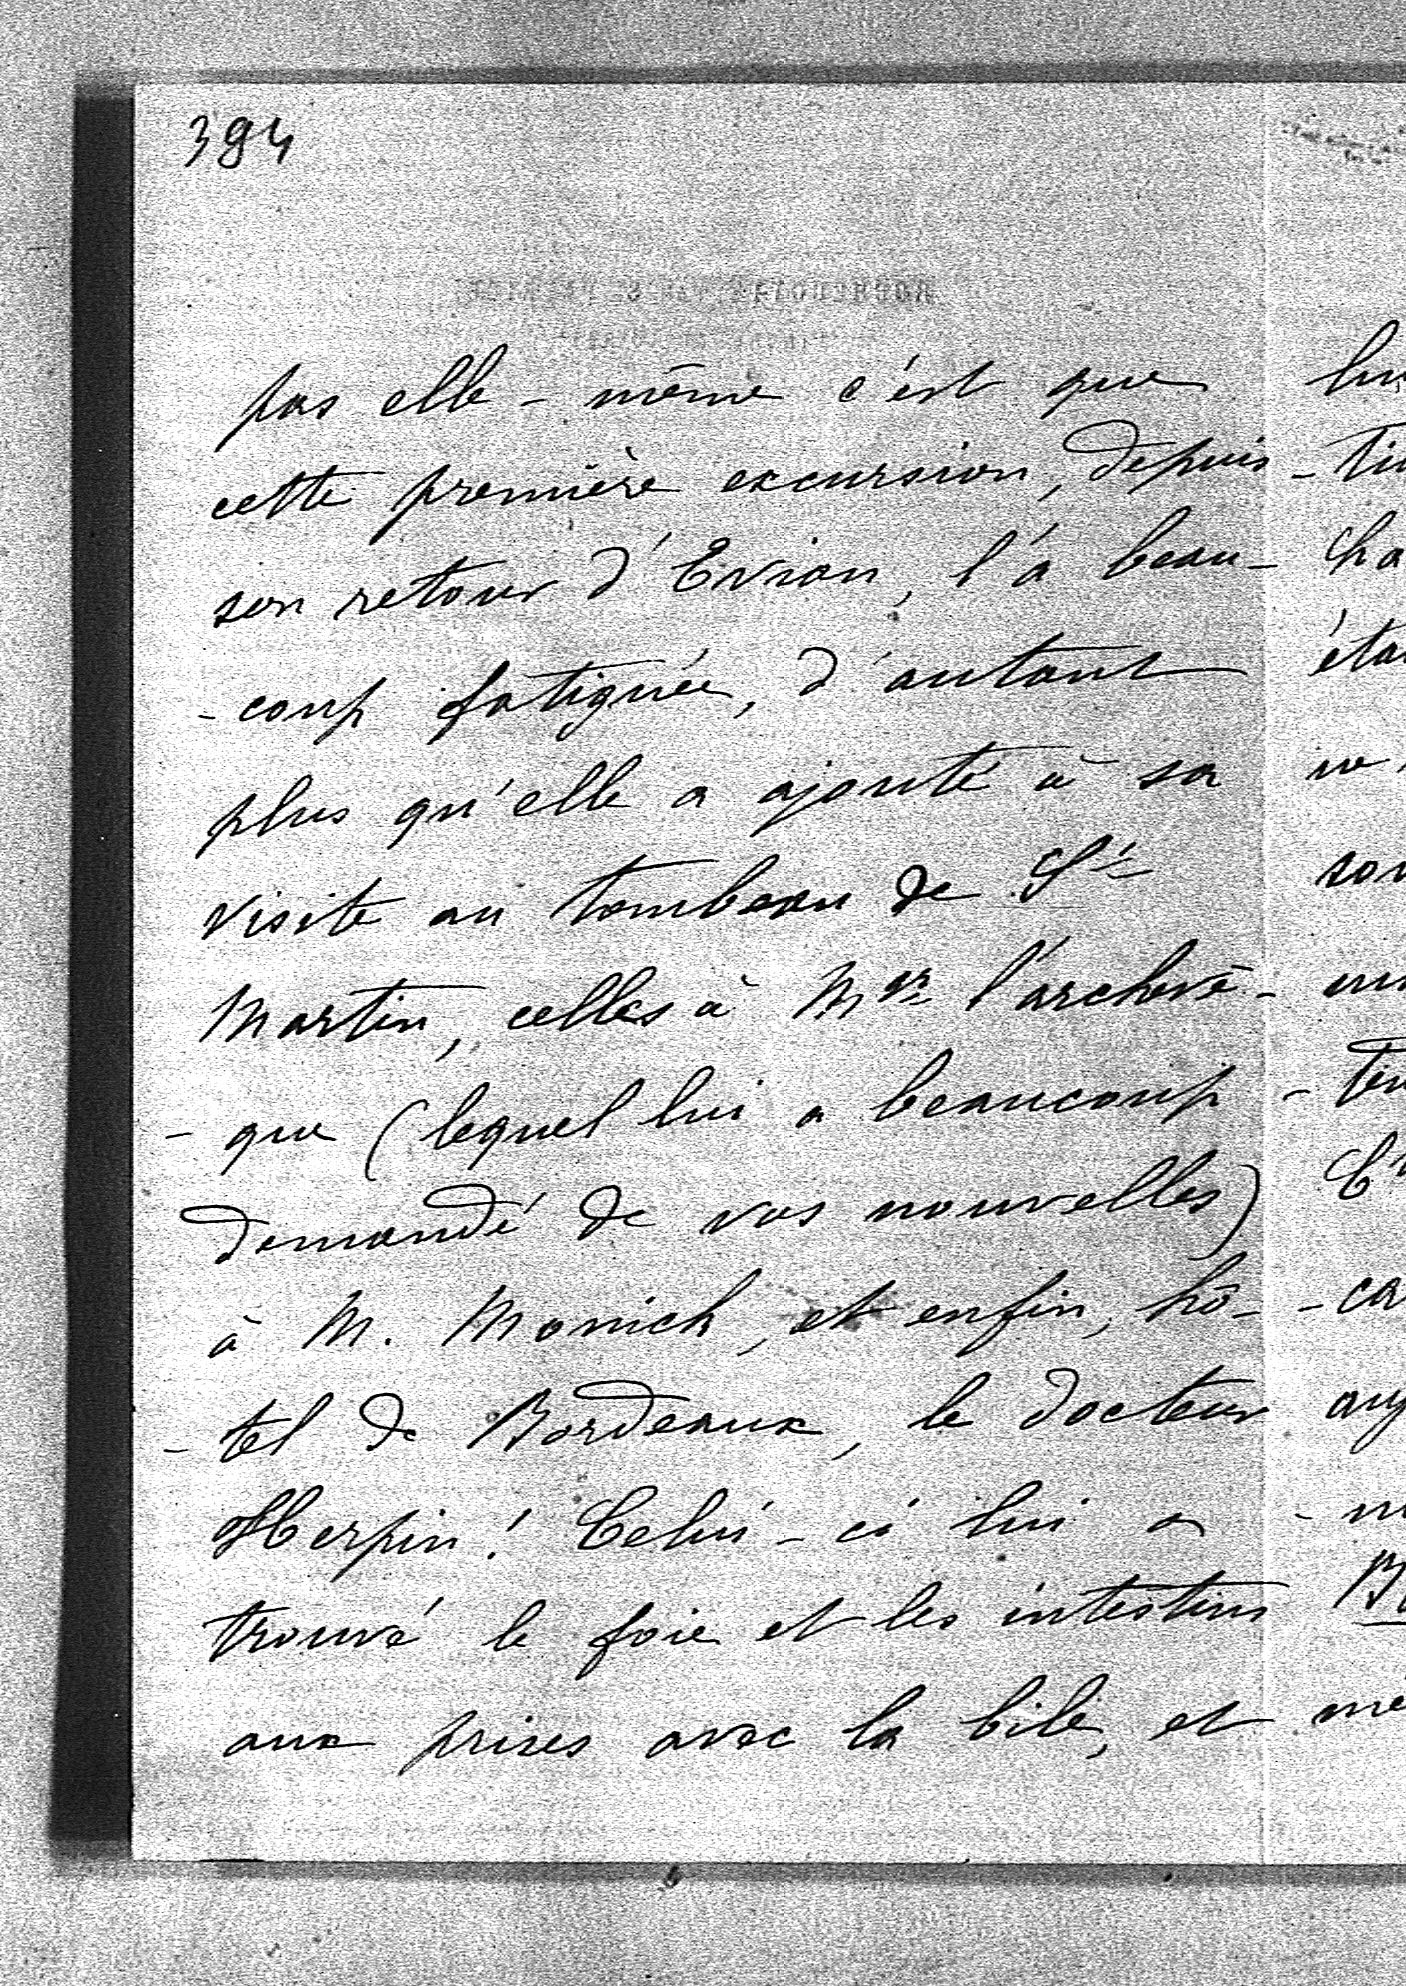 394
pas elle-même c'est que
cette première excursion, depuis
son retour d'Evian, l'a beau-
-coup fatiguée, d'autant
plus qu'elle a ajouté à sa
visite au tombeau de St
Martin, celles à Mgr l'archevê-
-que (lequel lui a beaucoup
demandé de vos nouvelles)
à M. Monich, et enfin, hô-
-tel de Bordeaux, le docteur
Herpin! Celui-ci lui a
trouvé le foie et les intestins
aux prises avec la bile, et